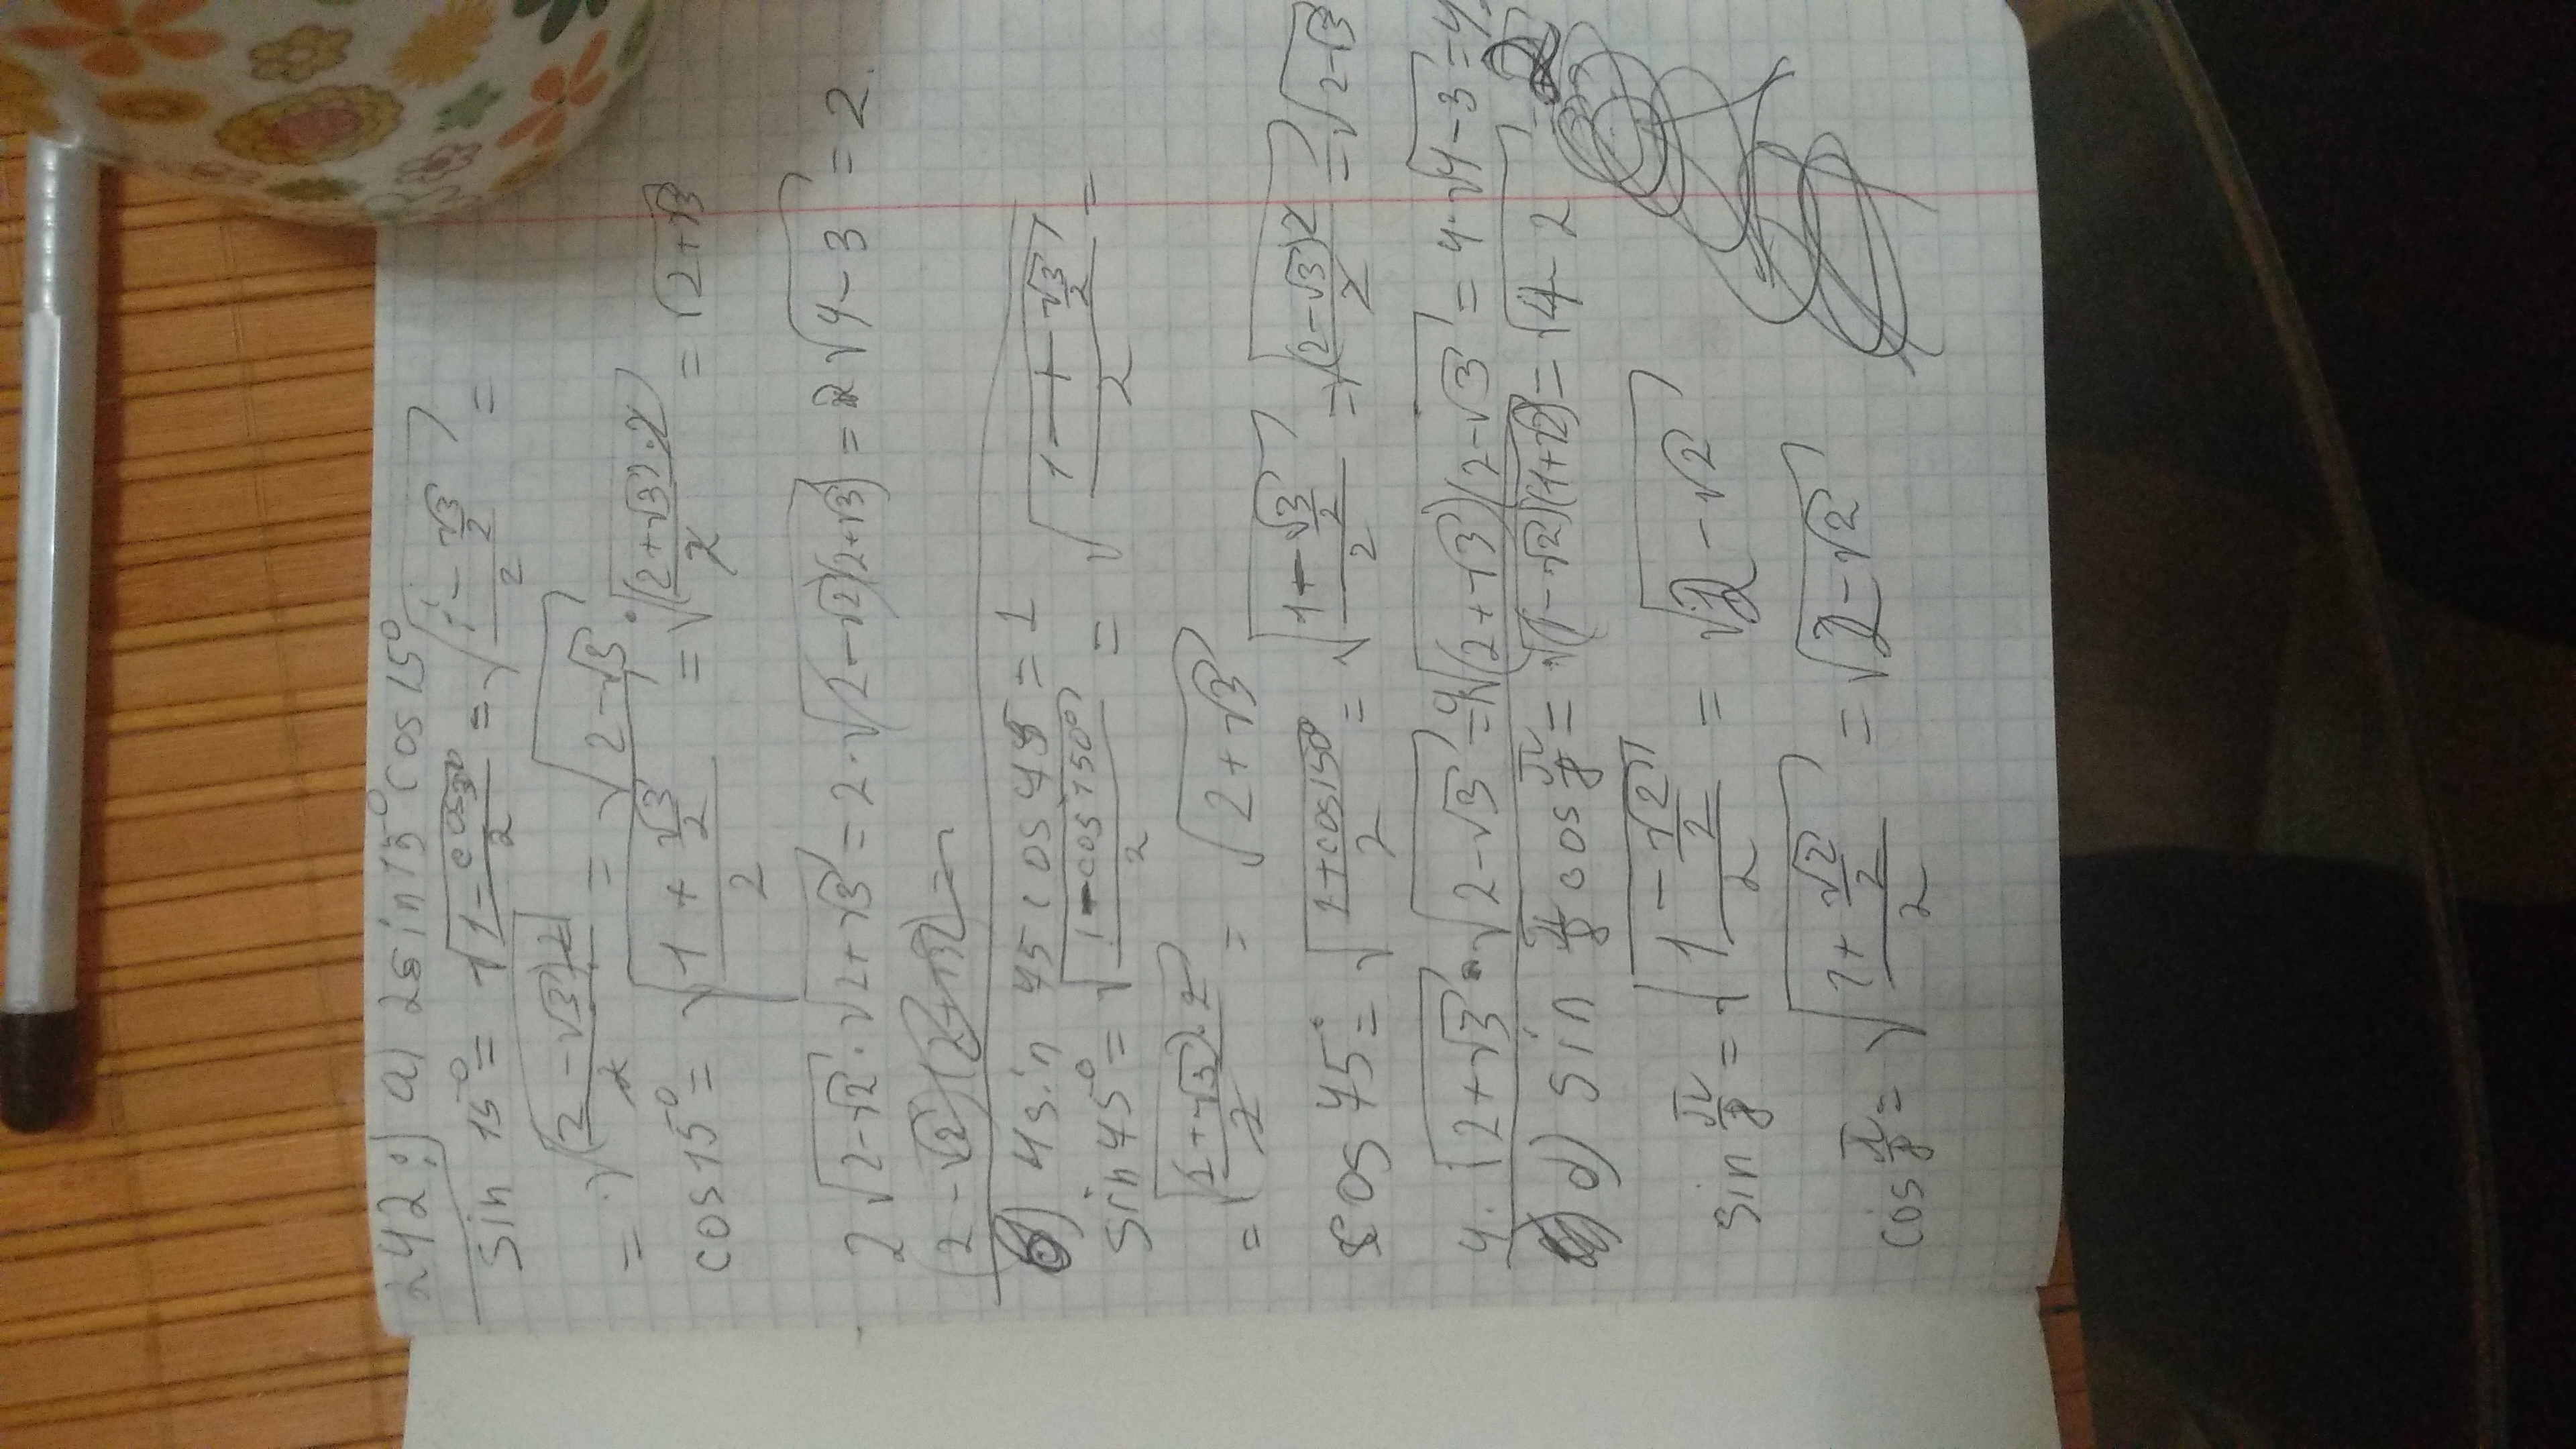 242:) a) 2sin15° cos15°
sin 15° = √((1-cos30°)/2) = √((1-√3/2)/2) =
= √((2-√3)·2/2) = √(2-√3)
cos15° = √((1+√3/2)/2) = √((2+√3)·2/2) = √(2+√3)
2√(2-√2)·√(2+√3) = 2·√((2-√2)(2+√3)) = 2√(4-3) = 2.
4sin 45 cos 45 = 1
sin45° = √((1-cos150°)/2) = √((1+√3/2)/2) =
= √((2+√3)·2/2) = √(2+√3)
cos 45° = √((1+cos150)/2) = √((1-√3/2)/2) = √((2-√3)2/2) = √(2-√3)
4·√(2+√3)·√(2-√3) = 4√((2+√3)(2-√3)) = 4·√(4-3) = 4.
d) sin π/8 cos π/8 = √((1-√2)(1+√2)) = √(4-2)
sin π/8 = √((1-√2/2)/2) = √(2-√2)
cos π/8 = √((1+√2/2)/2) = √(2-√2)